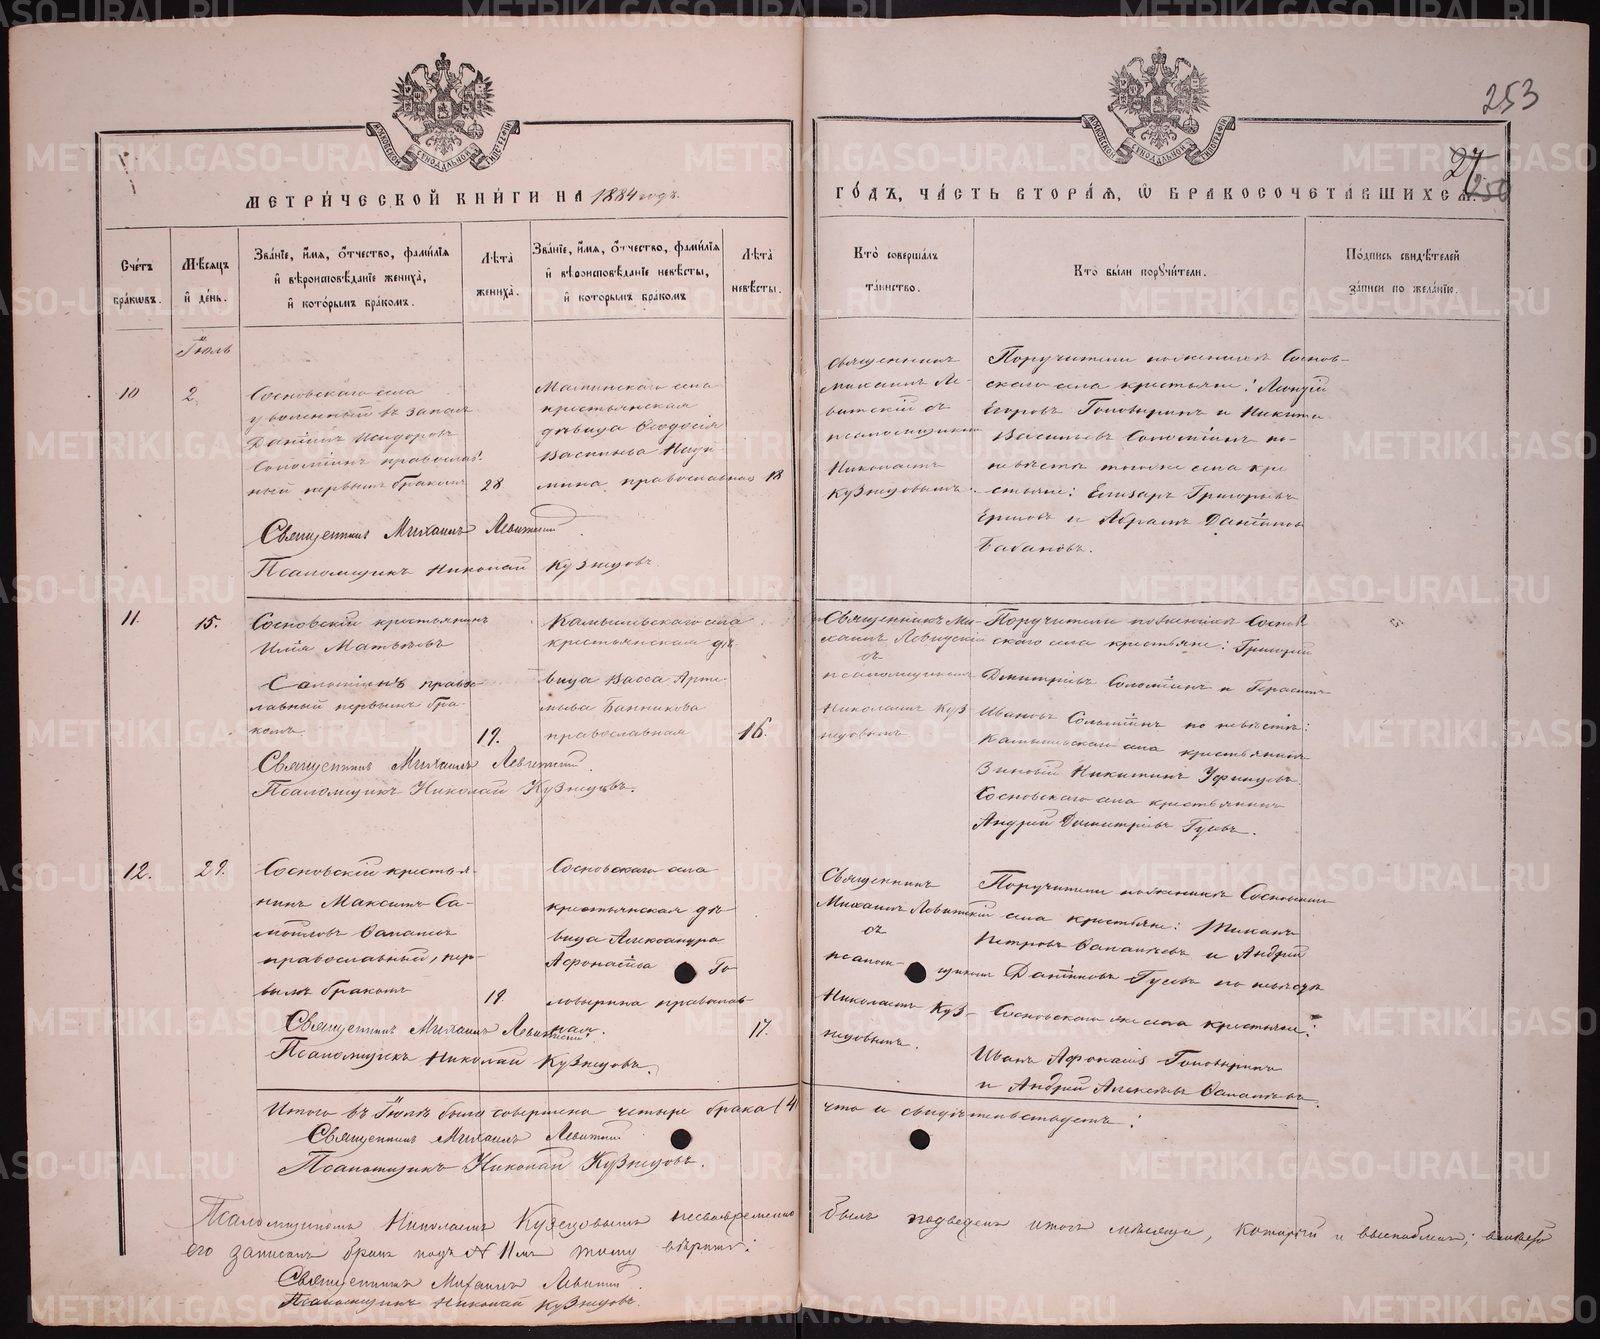 253
27
250
МЕТРИ́ЧЕСКОЙ КНИ́ГИ НА 1884 годъ.
ГО́ДЪ, ЧА́СТЬ ВТОРА́Ѧ, Ѽ БРАКОСОЧЕТА́ВШИХСѦ.
Сче́тъ бра́кѡвъ.
Мѣ́сѧцъ и҆ де́нь.
Зва́нїе, и҆́мѧ, ѻ҆́тчество, фами́лїѧ и҆ вѣроисповѣ́данїе жениха̀, и҆ кото́рымъ бра́комъ.
Лѣ́та жениха̀.
Зва́нїе, и҆́мѧ, ѻ҆́тчество, фами́лїѧ и҆ вѣроисповѣ́данїе невѣ́сты, и҆ кото́рымъ бра́комъ
Лѣ́та невѣ́сты.
Кто̀ соверша́лъ та́инство.
Кто̀ бы́ли порꙋчи́тели.
По́дпись свидѣ́телей за́писи по жела́нїю.
Іюль
10
2.
Сосновскаго села
уволенный въ запас
Даніилъ Исидоровъ
Соломіинъ православ-
ный первымъ бракомъ
28
Маминскаго села
крестьянская
дѣвица Ѳеодосія
Васильева
православная
18
Священникъ
Михаилъ Ле-
витскій съ
псаломщикомъ
Николаемъ
Кузнецовымъ.
Поручители по женихѣ Соснов-
скаго села крестьяне: Леонтій
Егоровъ Головыринъ и Никита
Васильевъ Соломіинъ по
невѣстѣ того же села кре
стьяне: Елизаръ Григорьевъ
Ершовъ и Абрамъ Даніиловъ
Бабановъ.
Священникъ Михаилъ Левитскій
Псаломщикъ Николай Кузнецовъ.
11.
15.
Сосновскій крестьянинъ
Илія Матѳѣевъ
Саломіинъ право-
славный первымъ бра-
комъ.
19.
Камышевскаго села
крестьянская дѣ-
вица Васса Арте-
мьева Банникова
православная
16.
Священникъ Ми-
хаилъ Левидскій
съ
псаломщикомъ
Николаемъ Куз-
нецовымъ
Поручители по женихѣ Соснов-
скаго села крестьяне: Григорій
Димитріевъ Соломіинъ и Герасимъ
Ивановъ Соломіинъ по невѣстѣ:
Камышевскаго села крестьянинъ
Зиновій Никитинъ Уфинцевъ
Сосновскаго села крестьянинъ
Андрей Димитріевъ Гусевъ.
Священникъ Михаилъ Левитскій.
Псаломщикъ Николай Кузнецовъ.
12.
29.
Сосновскій крестья-
нинъ Максимъ Са-
мойловъ
православный, пер-
вымъ бракомъ
19.
Сосновскаго села
крестьянская дѣ-
вица Александра
Афонасіева Го-
ловырина православ-
ная.
17.
Священникъ
Михаилъ Левитскій
съ
псалом-
щикомъ
Николаемъ Куз-
нецовымъ.
Поручители по женихѣ Сосновскаго
села крестьяне:
Петровъ и Андрей
Даніиловъ Гусевъ по невѣстѣ
Сосновскаго же села крестьяне:
Иванъ Афонасіевъ Головыринъ
и Андрей Алексѣевъ
Священникъ Михаилъ Левитскій
Псаломщикъ Николай Кузнецовъ.
Итого въ Іюлѣ было совершено четыре брака (4 что и свидѣтельствуетъ:
Священникъ Михаилъ Левитскій
Псаломщикъ Николай Кузнецовъ.
Псаломщикомъ Николаемъ Кузнецовымъ несвоевременно былъ подведенъ итогъ мѣсяца, который и выскобленъ;
его записанъ бракъ подъ № 11мъ тому вѣрить:
Священникъ Михаилъ Левитскій.
Псаломщикъ Николай Кузнецовъ.
METRIKI.GASO-URAL.RU